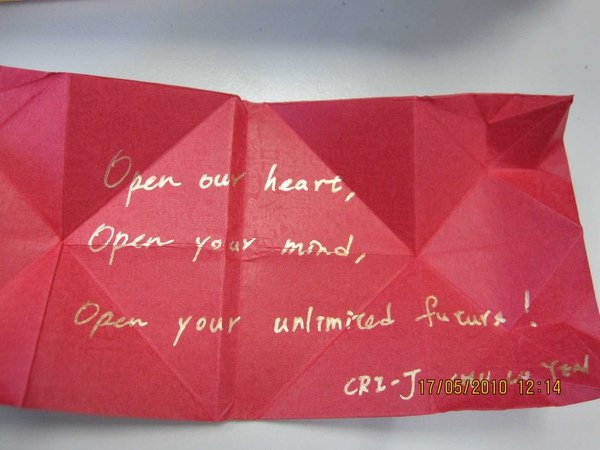 Open our heart,
Open your mind,
Open your unlimited future!
CRI-J
17/05/2010 12:14
YEN